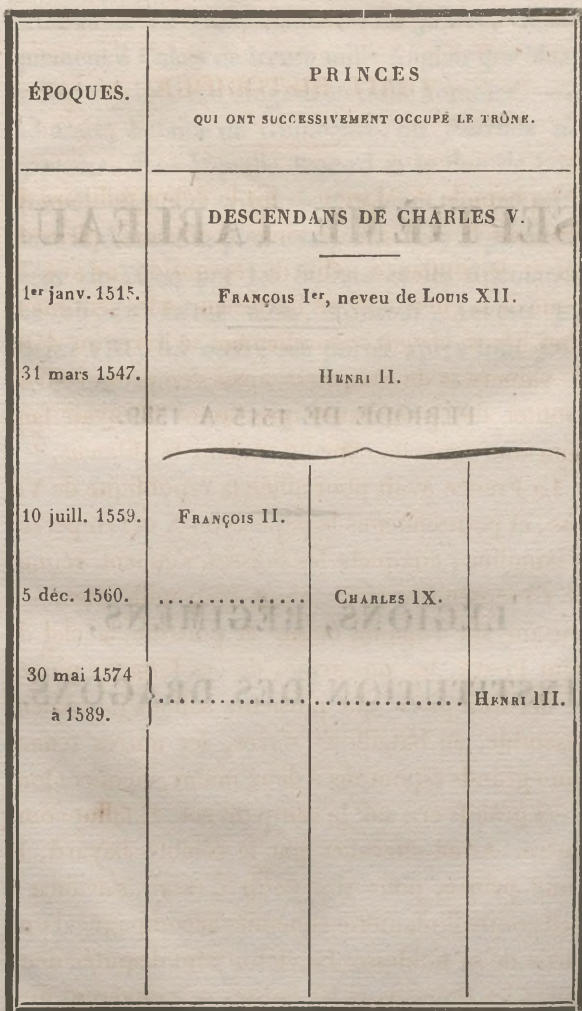 ÉPOQUES.
PRINCES
QUI ONT SUCCESSIVEMENT OCCUPÉ LE TRÔNE.
DESCENDANS DE CHARLES V.
1er janv. 1515. FRANÇOIS Ier, neveu de LOUIS XII.
31 mars 1547. HENRI II.
10 juill. 1559. FRANÇOIS II.
5 déc. 1560. .................. CHARLES IX.
30 mai 1574
à 1589. } ................................ HENRI III.